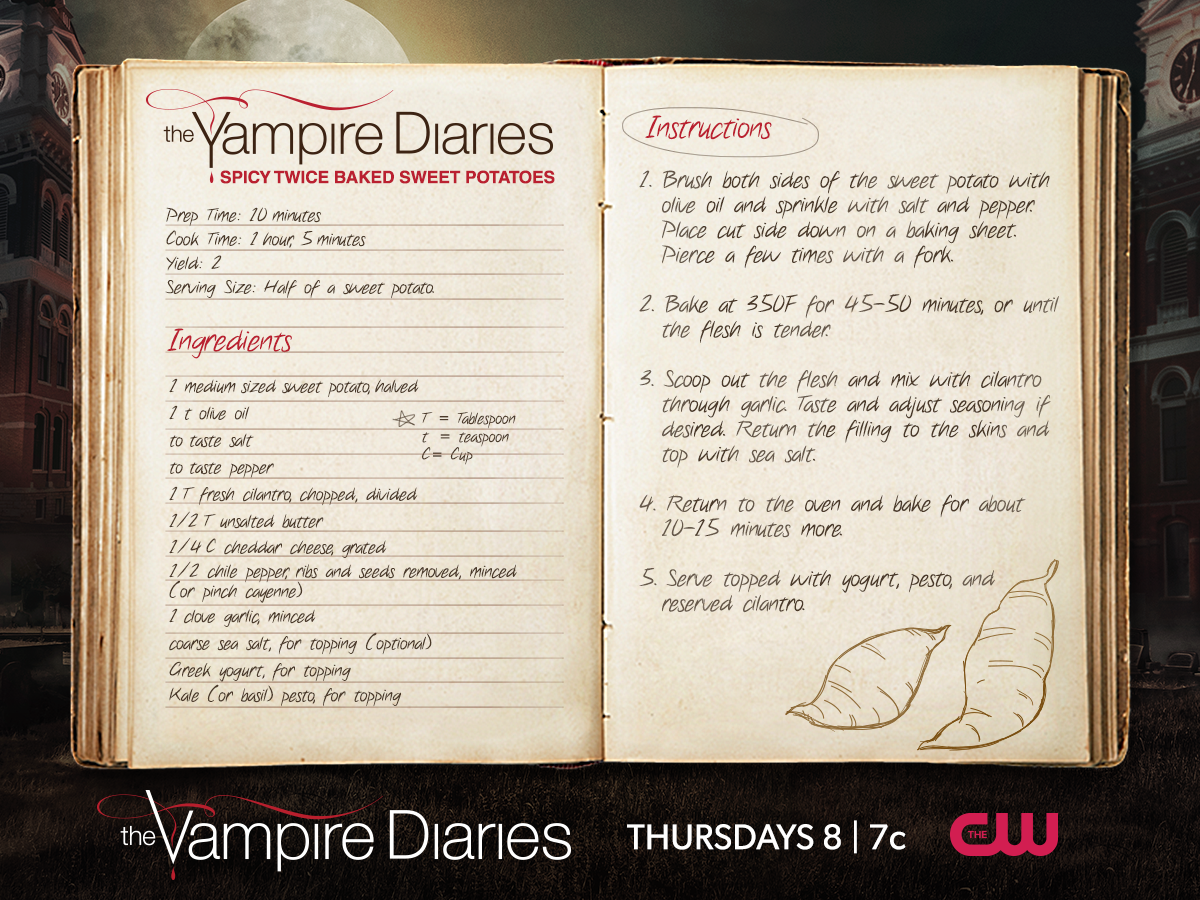 the Vampire Diaries
SPICY TWICE BAKED SWEET POTATOES
Prep Time: 10 minutes
Cook Time: 1 hour, 5 minutes
Yield: 2
Serving Size: Half of a sweet potato.
Ingredients
1 medium sized sweet potato, halved
1 t olive oil
to taste salt
to taste pepper
T = Tablespoon
t = teaspoon
C = Cup
1 T fresh cilantro, chopped, divided
1/2 T unsalted butter
1/4 C cheddar cheese, grated
1/2 chile pepper, ribs and seeds removed, minced
(or pinch cayenne)
1 clove garlic, minced
coarse sea salt, for topping (optional)
Greek yogurt, for topping
Kale (or basil) pesto, for topping
Instructions
1. Brush both sides of the sweet potato with
olive oil and sprinkle with salt and pepper.
Place cut side down on a baking sheet.
Pierce a few times with a fork.
2. Bake at 350F for 45-50 minutes, or until
the flesh is tender.
3. Scoop out the flesh and mix with cilantro
through garlic. Taste and adjust seasoning if
desired. Return the filling to the skins and
top with sea salt.
4. Return to the oven and bake for about
10-15 minutes more.
5. Serve topped with yogurt, pesto, and
reserved cilantro.
the Vampire Diaries
THURSDAYS 8 | 7c
THE CW